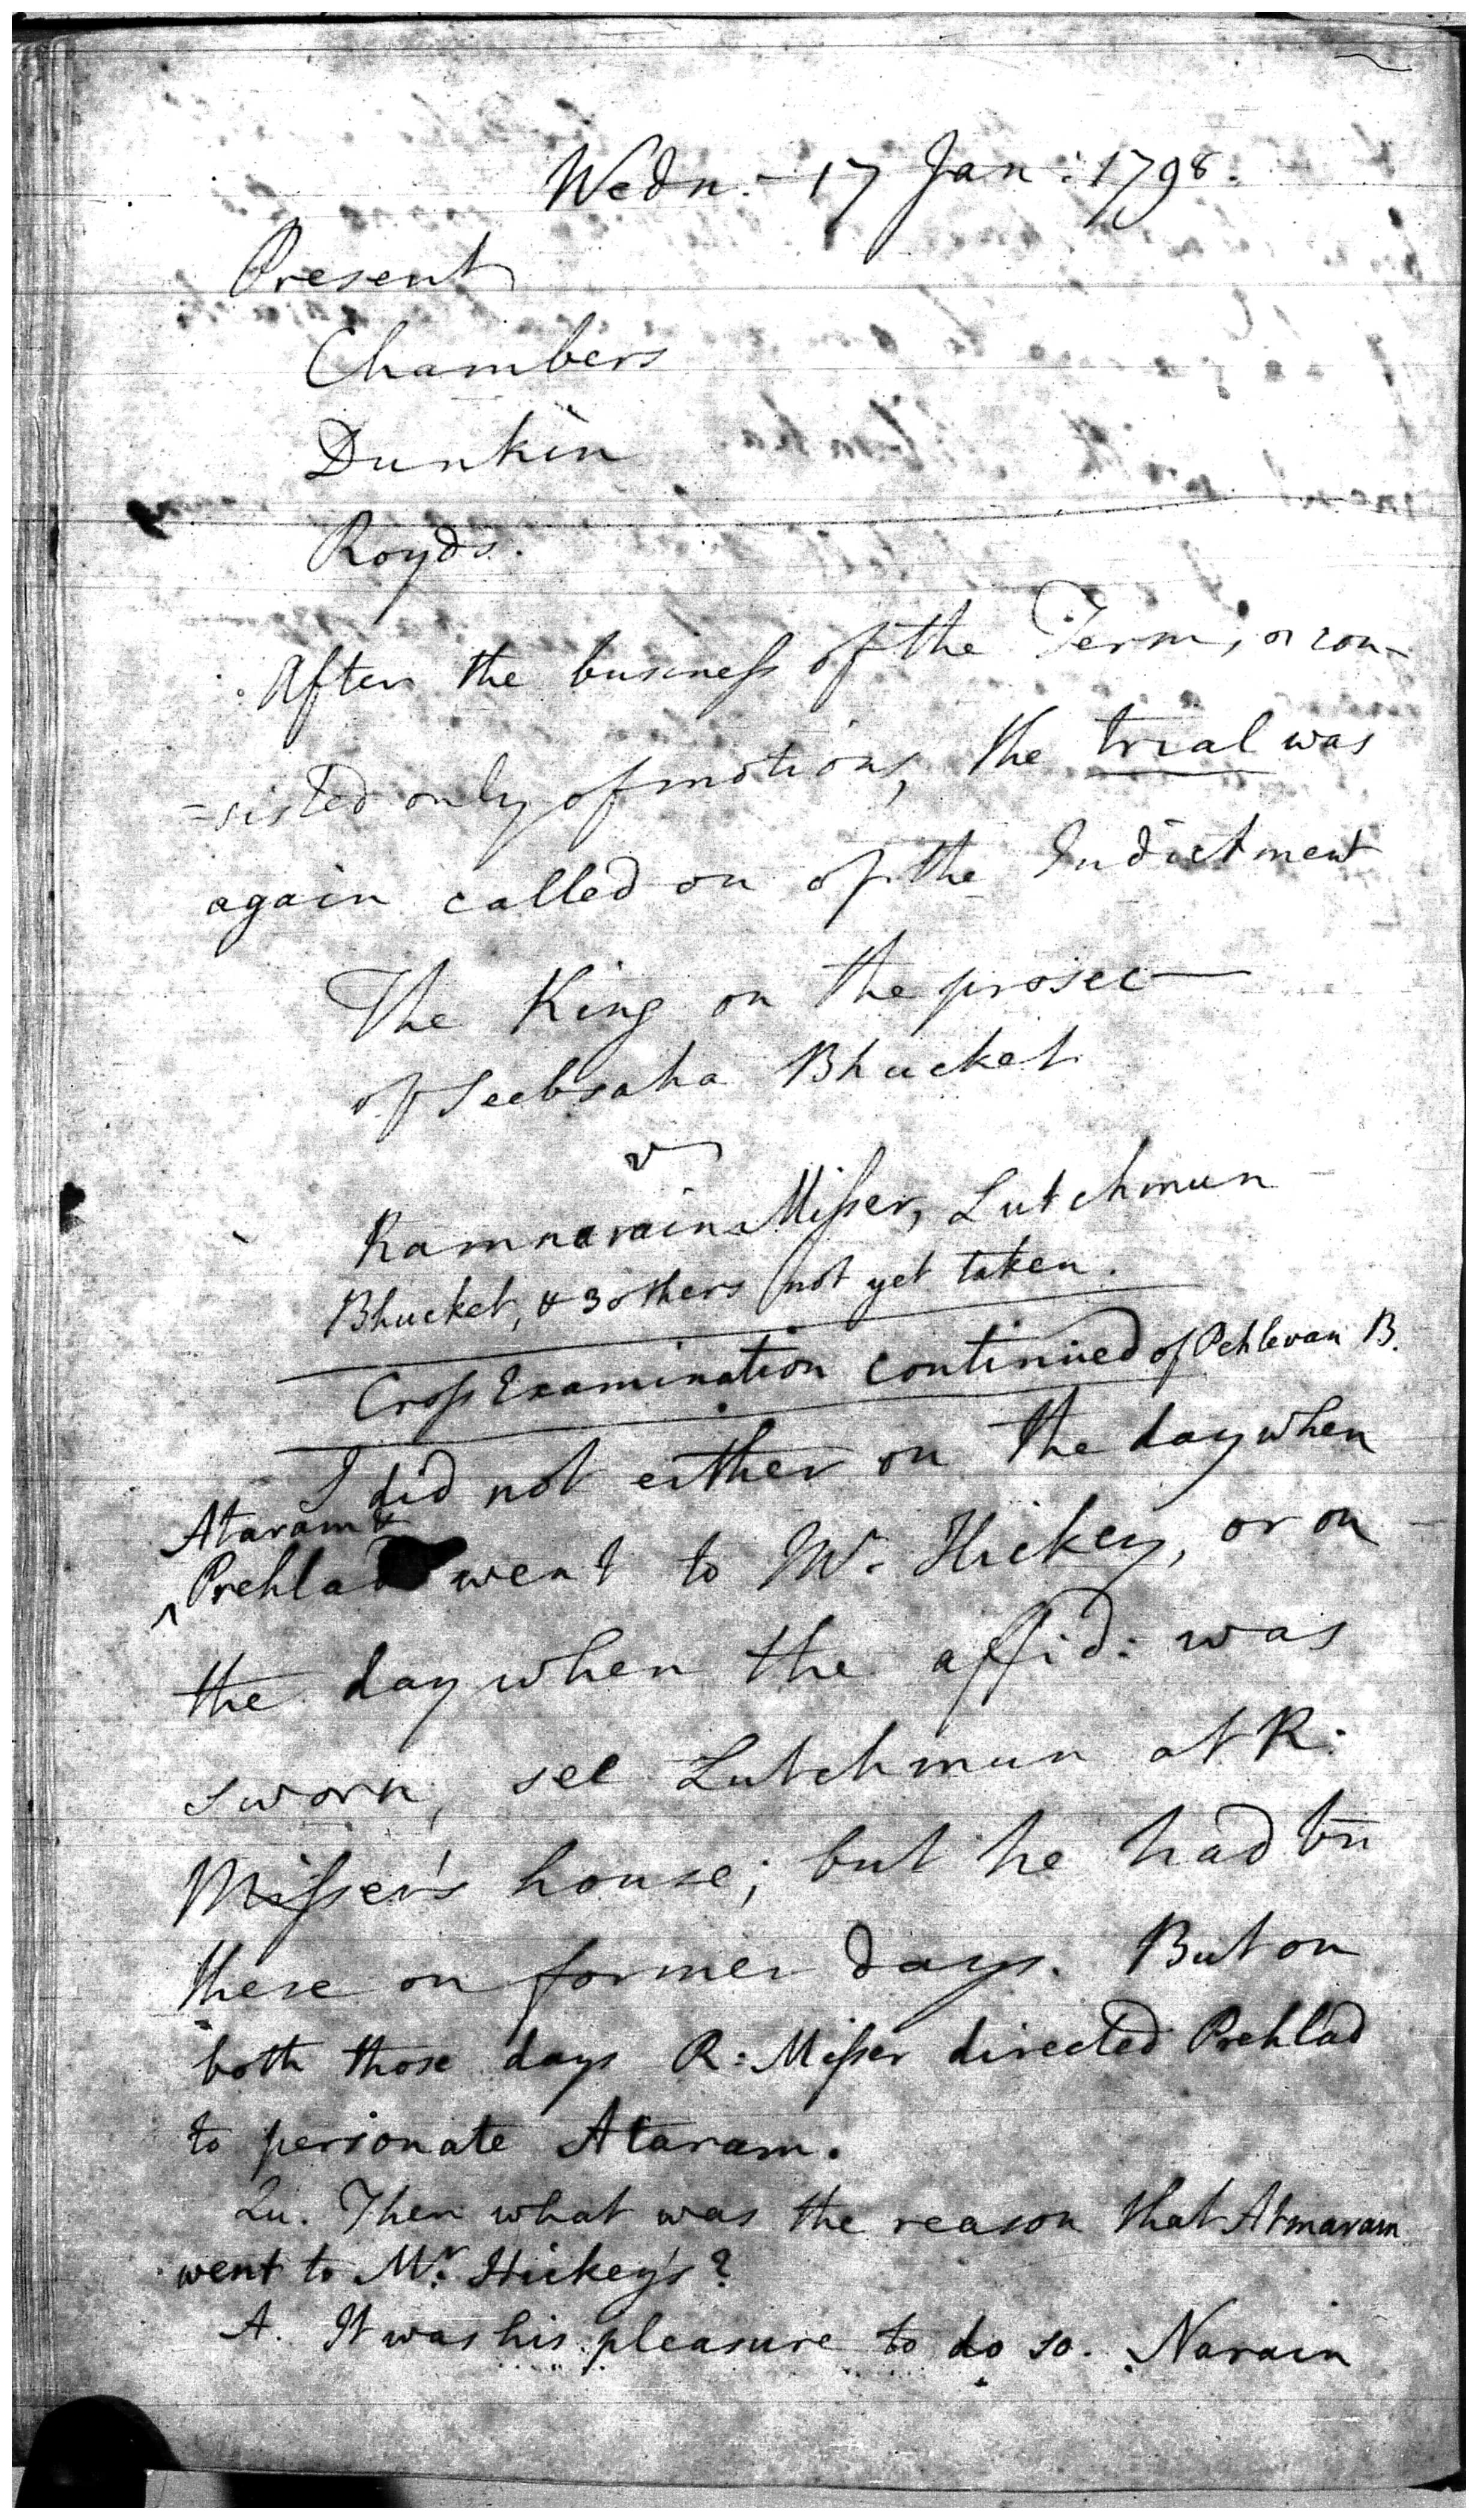 Wedn. - 17 Jan: 1798.
Present
Chambers
Dunkin
Royds.
After the business of the Term, con-
-sisted only of motions, the trial was
again called on of the Indictment
The King on the prosec—
of Seebsaha Bhucket
v
Ramnarain Misser, Lutchmun
Bhucket, & 3 others not yet taken.
Cross Examination continued of Pehlevan B.
I did not either on the day when
Ataram &
Prehlad went to Mr. Hickey, or on
the day when the affid: was
sworn, see Lutchmun at R:
Misser's house; but he had bn
there on former days. But on
both those days R: Misser directed Prehlad
to personate Ataram.
Qu. Then what was the reason that Atmaram
went to Mr. Hickey's?
A. It was his pleasure to do so. Narain